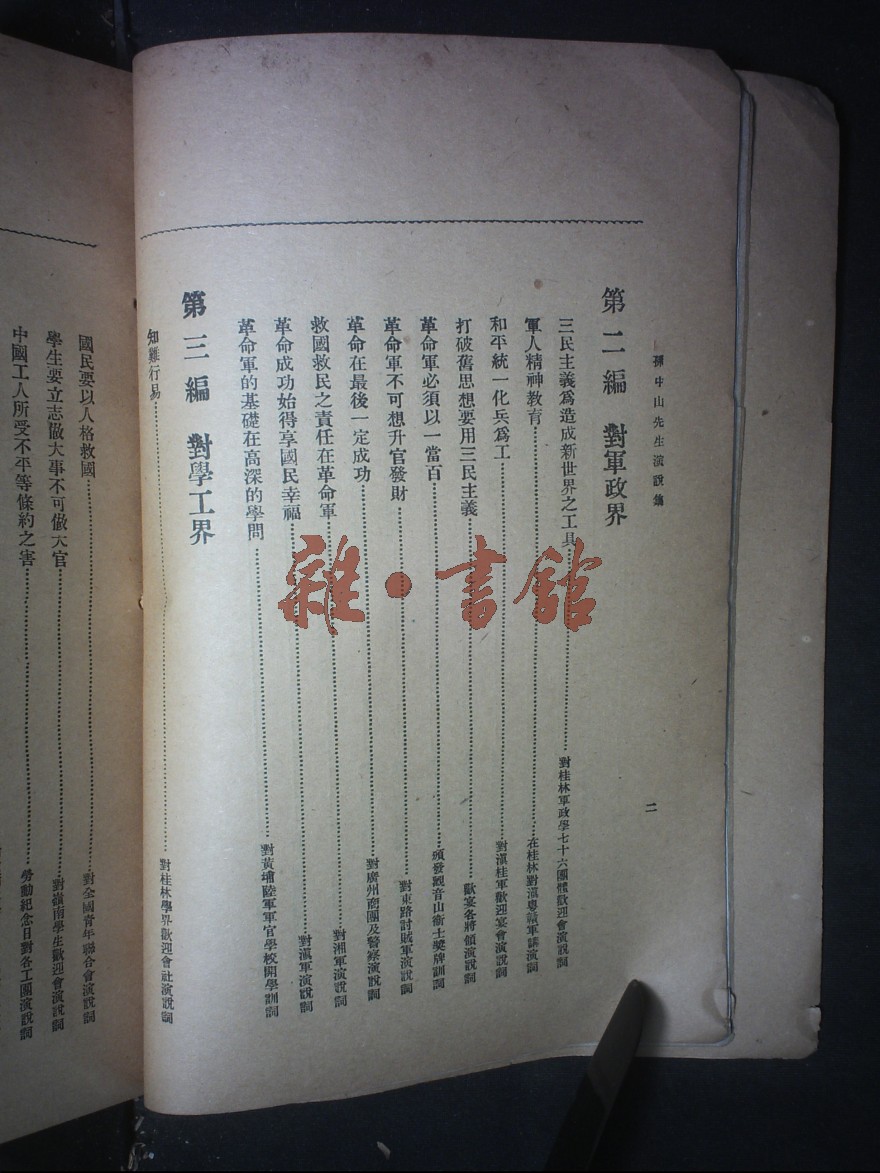 孫中山先生演說集
二
第二編 對軍政界
三民主義爲造成新世界之工具……對桂林軍政學七十六團體歡迎會演說詞
軍人精神教育……在桂林對滇粵贛軍講演詞
和平統一化兵爲工……對滇桂軍歡迎宴會演說詞
打破舊思想要用三民主義……歡宴各將領演說詞
革命軍必須以一當百……頒發觀音山衞士獎牌訓詞
革命軍不可想升官發財……對東路討賊軍演說詞
革命在最後一定成功……對廣州商團及警察演說詞
救國救民之責任在革命軍……對湘軍演說詞
革命成功始得享國民幸福……對滇軍演說詞
革命軍的基礎在高深的學問……對黃埔陸軍軍官學校開學訓詞
第三編 對學工界
知難行易……對桂林學界歡迎會社演說詞
國民要以人格救國……對全國青年聯合會演說詞
學生要立志做大事不可做大官……對嶺南學生歡迎會演說詞
中國工人所受不平等條約之害……勞動紀念日對各工團演說詞
雜·書館